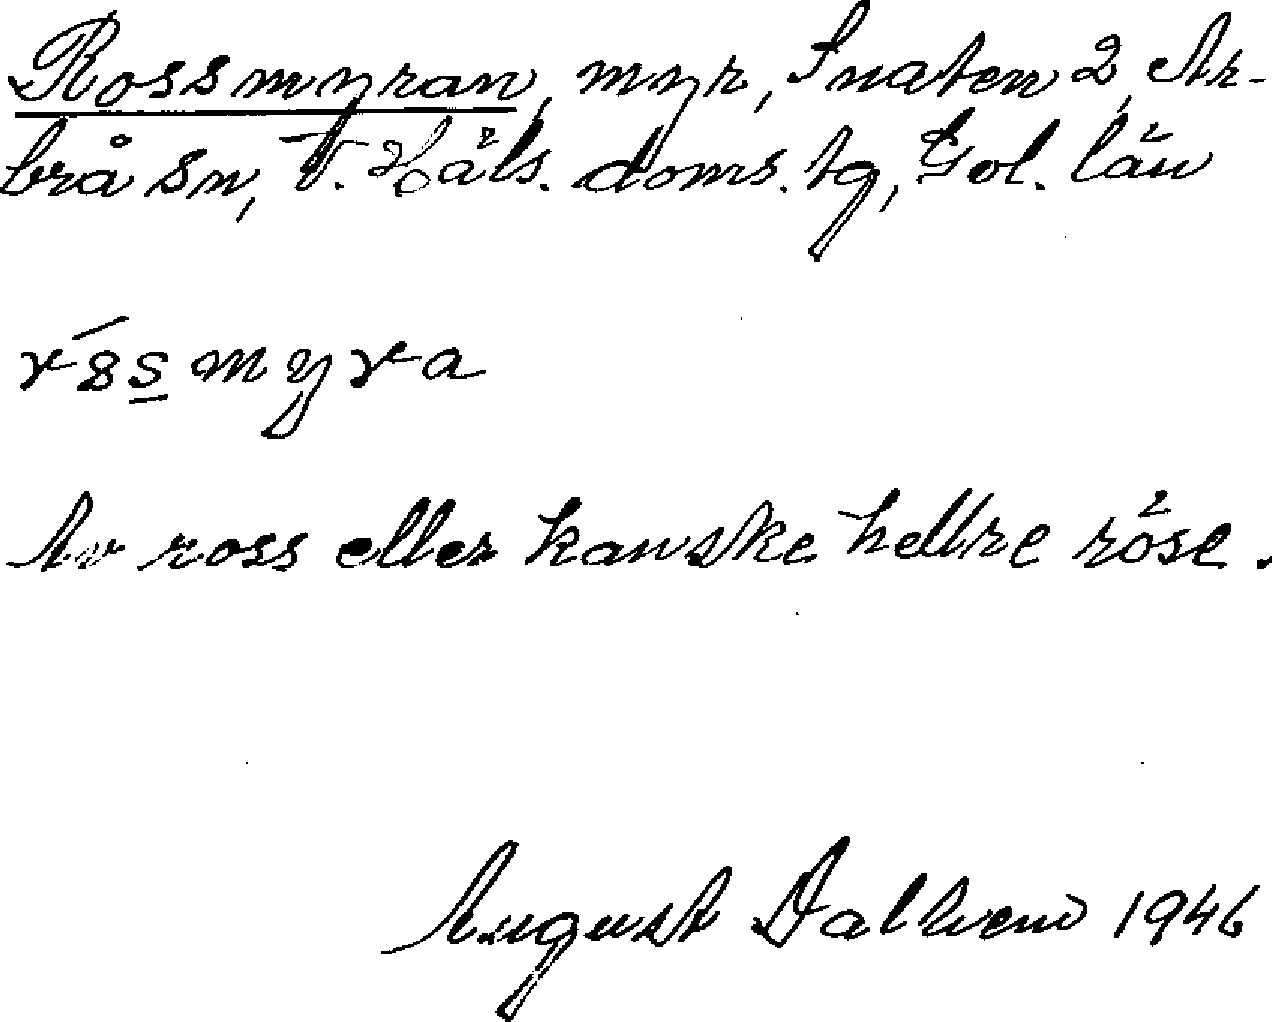 Rossmyran, myr, Snaten 2, Ar-
brå sn, V. Häls. doms. tg, Gvl. län
rɞsmyra
Av ross eller kanske hellre röse.
August 1946